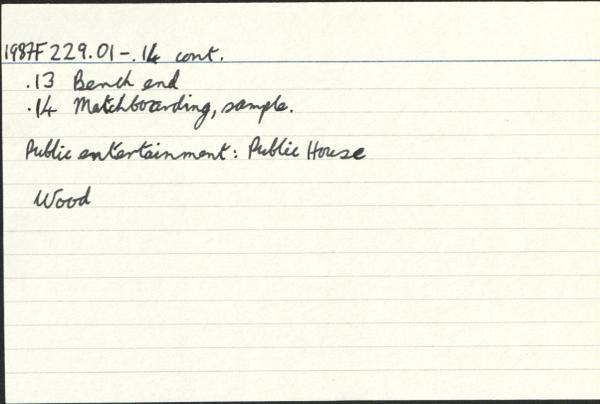 1987F229.01-.14 cont.
.13 Bench end
.14 Matchboarding, sample.
Public entertainment: Public House
Wood